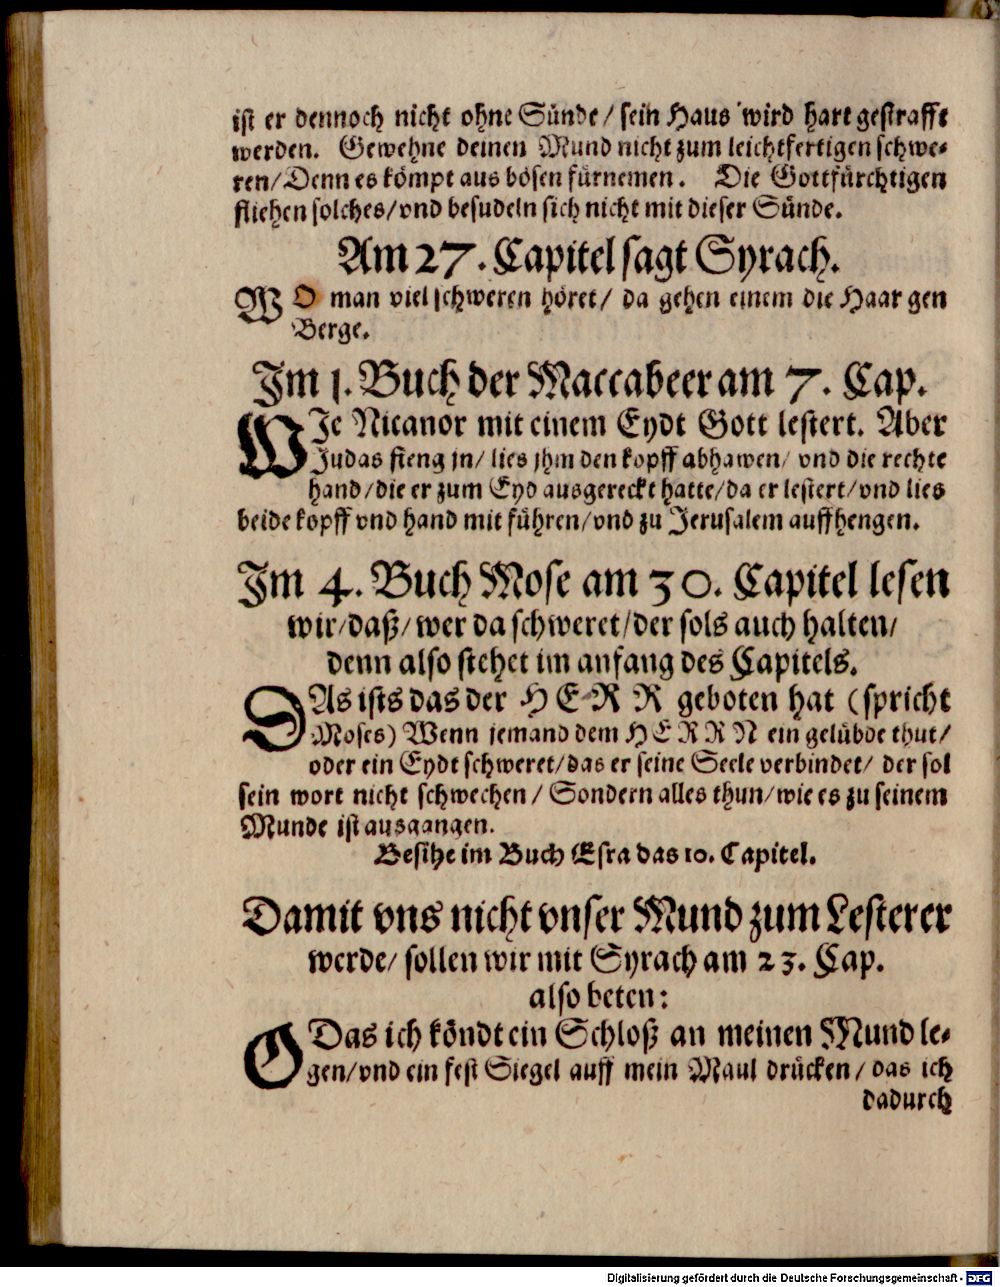 ist er dennoch nicht ohne Sünde / sein Haus wird hart gestrafft
werden. Gewehne deinen Mund nicht zum leichtfertigen schwe-
ren / Denn es kömpt aus bösen fürnemen. Die Gottfürchtigen
fliehen solches / vnd besudeln sich nicht mit dieser Sünde.
Am 27. Capitel sagt Syrach.
WO man viel schweren höret / da gehen einem die Haar gen
Berge.
Im 1. Buch der Maccabeer am 7. Cap.
WIe Nicanor mit einem Eydt Gott lestert. Aber
Judas fieng jn / lies jhm den kopff abhawen / vnd die rechte
hand / die er zum Eyd ausgereckt hatte / da er lestert / vnd lies
beide kopff vnd hand mit führen / vnd zu Jerusalem auffhengen.
Im 4. Buch Mose am 30. Capitel lesen
wir / daß / wer da schweret / der sols auch halten /
denn also stehet im anfang des Capitels.
DAs ists das der HERR geboten hat (spricht
Moses) Wenn jemand dem HERRN ein gelübde thut /
oder ein Eydt schweret / das er seine Seele verbindet / der sol
sein wort nicht schwechen / Sondern alles thun / wie es zu seinem
Munde ist ausgangen.
Besihe im Buch Esra das 10. Capitel.
Damit vns nicht vnser Mund zum Lesterer
werde / sollen wir mit Syrach am 23. Cap.
also beten:
O Das ich köndt ein Schloß an meinen Mund le-
gen / vnd ein fest Siegel auff mein Maul drücken / das ich
dadurch
Digitalisierung gefördert durch die Deutsche Forschungsgemeinschaft - DFG